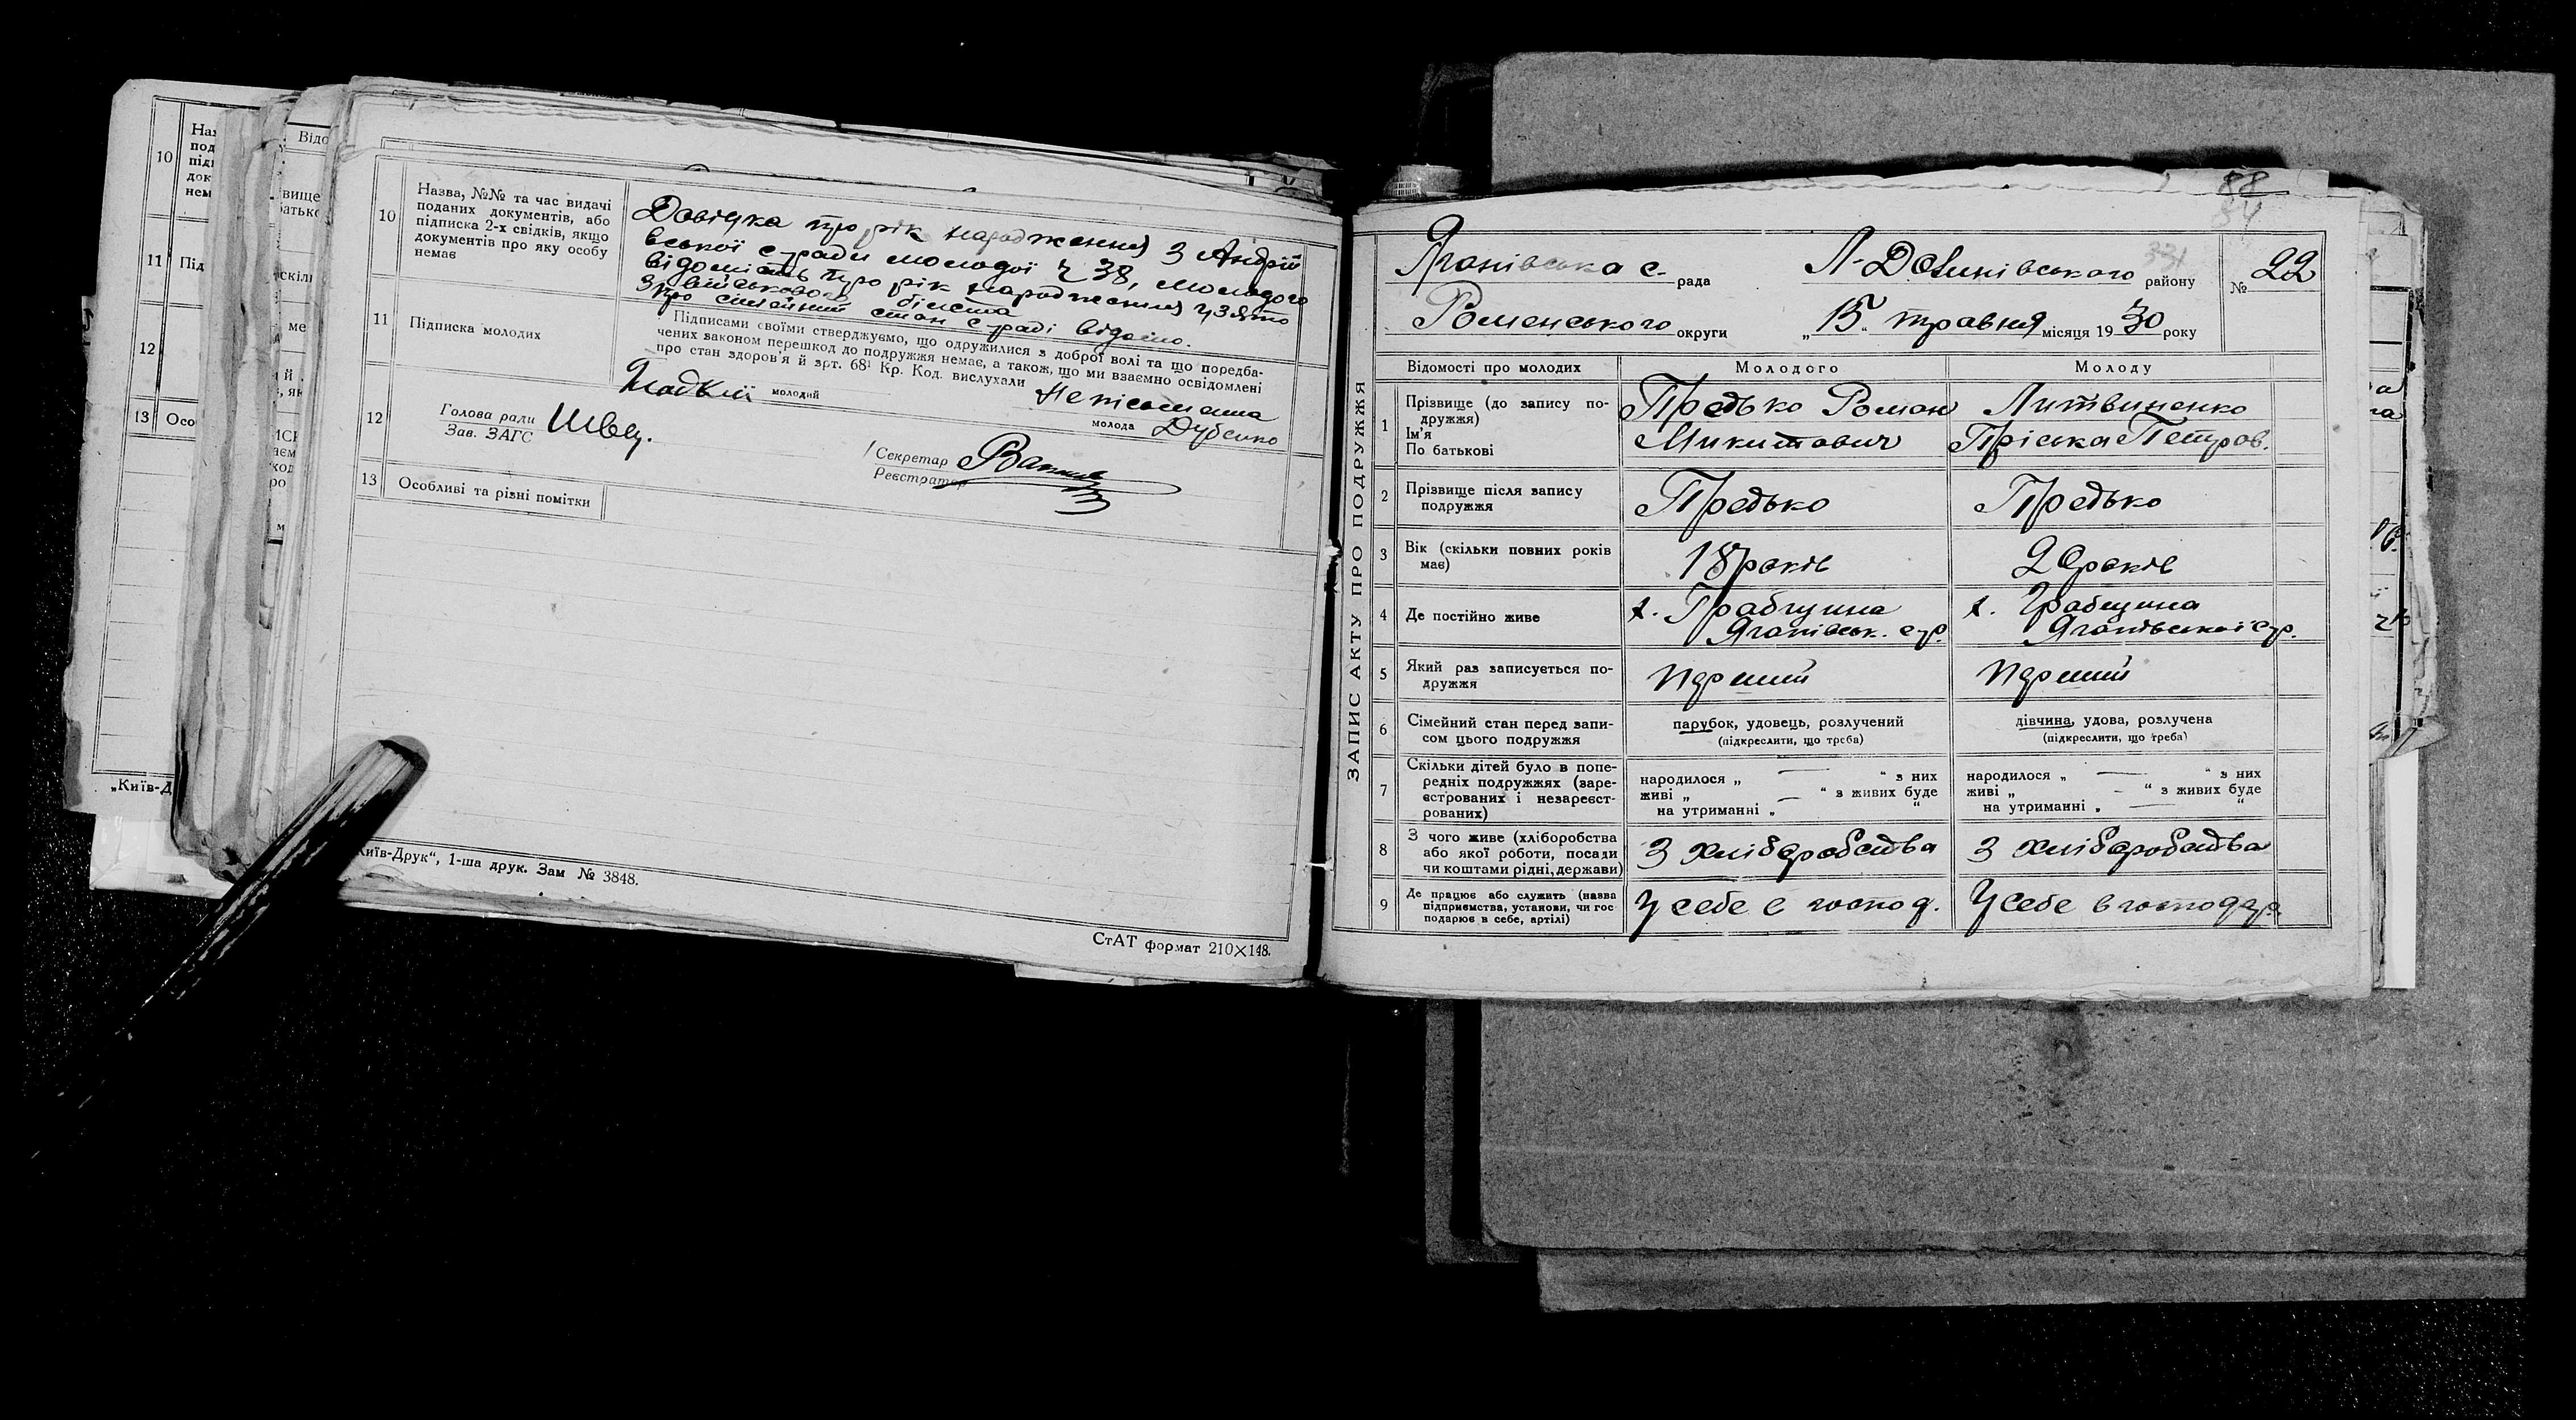 10
Наз
под
підп
док
нем
11 Під
12
13 Осо
„Київ-Д
Відо
вище
батько
скіль
10 Назва, №№ та час видачі
поданих документів, або
підписка 2-х свідків, якщо
документів про яку особу
немає
Довідка про рік народження з Андрій
вської с/ради молодої ч 38, молодого
відомість про рік народження узято
з військового білета
про сімейний стан с/раді відомо.
11 Підписка молодих
Підписами своїми стверджуємо, що одружилися з доброї волі та що поредба-
чених законом перешкод до подружжя немає, а також, що ми взаємно освідомлені
про стан здоров'я й зрт. 68¹ Кр. Код. вислухали
молодий Неписьменна
молода Дубенко
12 Голова ради
Зав. ЗАГС
Швец.
Секретар
Реєстратор
13 Особливі та різні помітки
Київ-Друк“, 1-ша друк. Зам № 3848.
СтАТ формат 210×148.
88
84
331
ЗАПИС АКТУ ПРО ПОДРУЖЖЯ
Яганівська с. рада Л-Долинівського району № 22
Роменського округи „15“ травня місяця 1930 року
Відомості про молодих Молодого Молоду
1 Прізвище (до запису по-
дружжя)
Ім'я
По батькові
Предько Роман
Микитович
Литвиненко
Пріська Петров.
2 Прізвище після запису
подружжя
Предько Предько
3 Вік (скільки повних років
має)
18 років 20 років
4 Де постійно живе
х. Грабщина
Яганівськ. с/р.
х. Грабщина
Яганівської с/р.
5 Який раз записується по-
дружжя
перший перший
6 Сімейний стан перед запи-
сом цього подружжя
парубок, удовець, розлучений
(підкреслити, що треба)
дівчина, удова, розлучена
(підкреслити, що треба)
7 Скільки дітей було в попе-
редніх подружжях (заре-
єстрованих і незареєст-
рованих)
народилося „ — “ з них
живі „ — “ з живих буде
на утриманні „ “
народилося „ — “ з них
живі „ — “ з живих буде
на утриманні „ — “
8 З чого живе (хліборобства
або якої роботи, посади
чи коштами рідні, держави)
З хліборобства З хліборобства
9 Де працює або служить (назва
підприємства, установи, чи гос-
подарює в себе, артілі)
У себе в господ. У себе в господар.